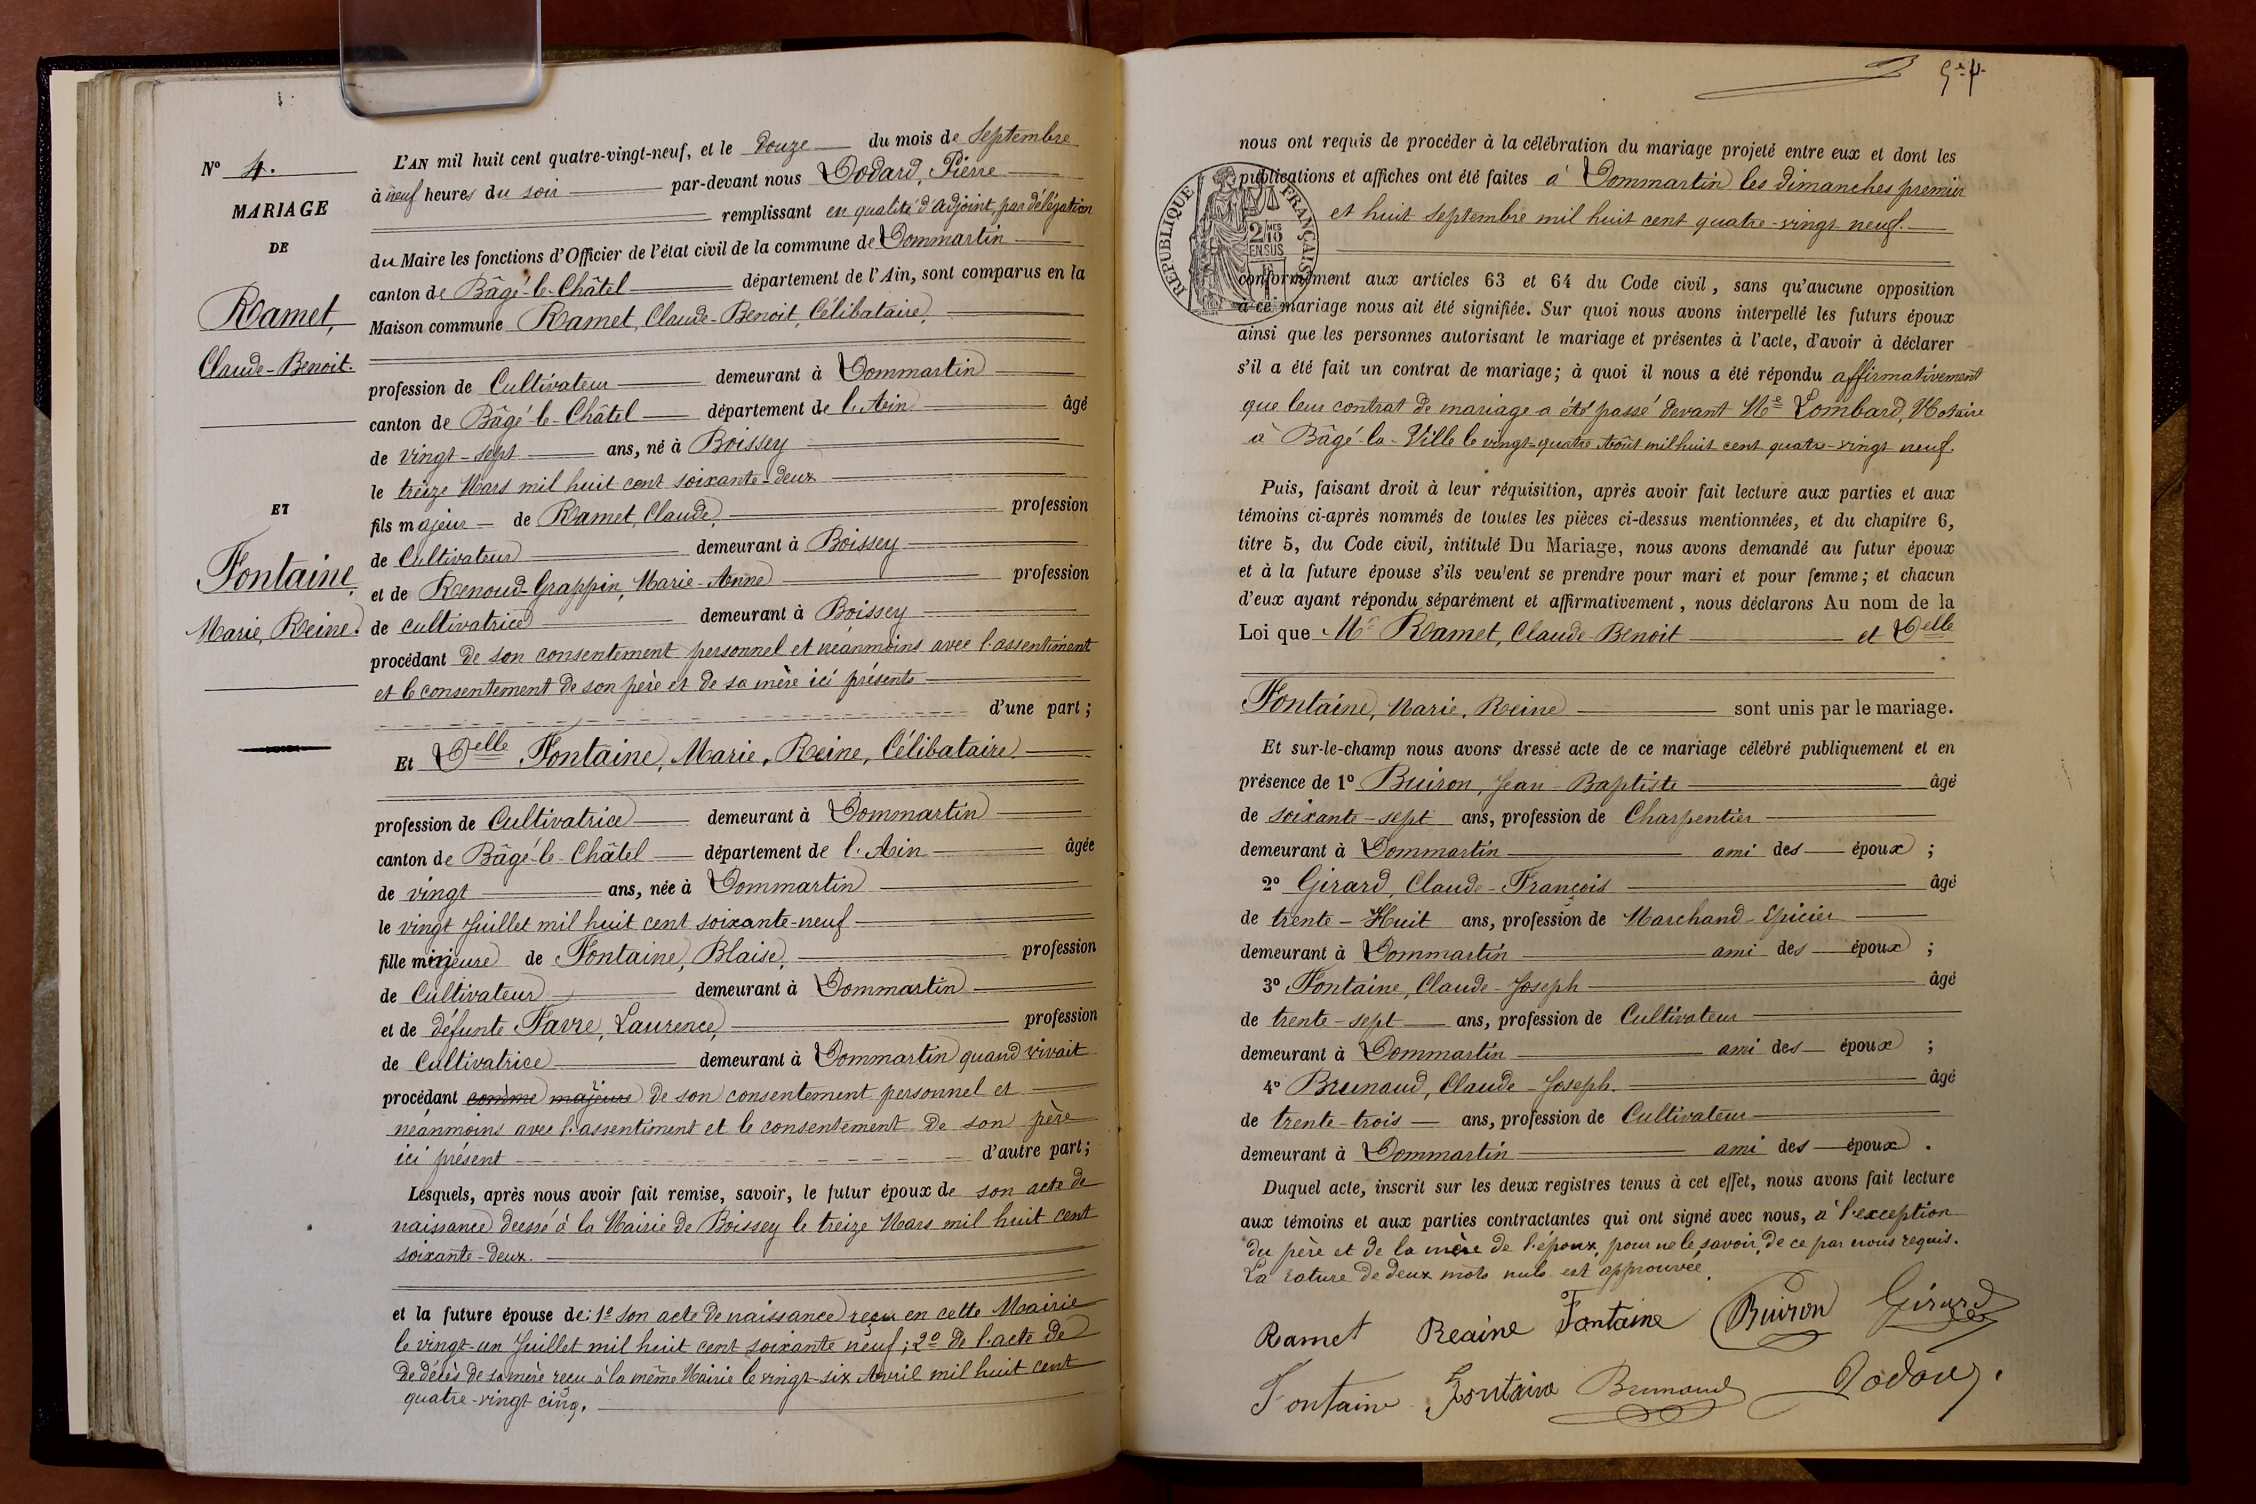 Nº 4.
MARIAGE
DE
Ramet,
Claude-Benoit.
ET
Fontaine,
Marie, Reine.
L'AN mil huit cent quatre-vingt-neuf, et le douze du mois de Septembre
à neuf heures du soir par-devant nous Dodard, Pierre
remplissant en qualité d'adjoint, par délégation
du Maire les fonctions d'Officier de l'état civil de la commune de Dommartin
canton de Bâgé-le-Châtel département de l'Ain, sont comparus en la
Maison commune Ramet, Claude-Benoit, Célibataire,
profession de Cultivateur demeurant à Dommartin
canton de Bâgé-le-Châtel département de l'Ain âgé
de vingt-sept ans, né à Boissey
le treize Mars mil huit cent soixante-deux
fils majeur de Ramet, Claude, profession
de Cultivateur demeurant à Boissey
et de Renoud-Grappin, Marie-Anne profession
de cultivatrice demeurant à Boissey
procédant de son consentement personnel et néanmoins avec l'assentiment
et le consentement de son père et de sa mère ici présents
d'une part;
Et Delle Fontaine, Marie, Reine, Célibataire
profession de Cultivatrice demeurant à Dommartin
canton de Bâgé-le-Châtel département de l'Ain âgée
de vingt ans, née à Dommartin
le vingt Juillet mil huit cent soixante-neuf
fille mineure de Fontaine, Blaise, profession
de Cultivateur demeurant à Dommartin
et de défunte Favre, Laurence, profession
de Cultivatrice demeurant à Dommartin quand vivait
procédant comme majeure de son consentement personnel et
néanmoins avec l'assentiment et le consentement de son père
ici présent d'autre part;
Lesquels, après nous avoir fait remise, savoir, le futur époux de son acte de
naissance dressé à la Mairie de Boissey le treize Mars mil huit cent
soixante-deux.
et la future épouse de: 1º son acte de naissance reçu en cette Mairie
le vingt-un Juillet mil huit cent soixante neuf; 2º de l'acte de
de décès de sa mère reçu à la même Mairie le vingt-six Avril mil huit cent
quatre-vingt cinq.
nous ont requis de procéder à la célébration du mariage projeté entre eux et dont les
publications et affiches ont été faites à Dommartin les dimanches premier
et huit Septembre mil huit cent quatre-vingt neuf.
RÉPUBLIQUE FRANÇAISE
2/10MES
EN SUS
conformément aux articles 63 et 64 du Code civil, sans qu'aucune opposition
à ce mariage nous ait été signifiée. Sur quoi nous avons interpellé les futurs époux
ainsi que les personnes autorisant le mariage et présentes à l'acte, d'avoir à déclarer
s'il a été fait un contrat de mariage; à quoi il nous a été répondu affirmativement
que leur contrat de mariage a été passé devant Me Lombard, Notaire
à Bâgé-la-Ville le vingt-quatre Août mil huit cent quatre-vingt neuf.
Puis, faisant droit à leur réquisition, après avoir fait lecture aux parties et aux
témoins ci-après nommés de toutes les pièces ci-dessus mentionnées, et du chapitre 6,
titre 5, du Code civil, intitulé Du Mariage, nous avons demandé au futur époux
et à la future épouse s'ils veulent se prendre pour mari et pour femme; et chacun
d'eux ayant répondu séparément et affirmativement, nous déclarons Au nom de la
Loi que Mr Ramet, Claude-Benoit et Delle
Fontaine, Marie, Reine sont unis par le mariage.
Et sur-le-champ nous avons dressé acte de ce mariage célébré publiquement et en
présence de 1º Buiron, Jean-Baptiste âgé
de soixante-sept ans, profession de Charpentier
demeurant à Dommartin ami des époux;
2º Girard, Claude-François âgé
de trente-Huit ans, profession de Marchand-Epicier
demeurant à Dommartin ami des époux;
3º Fontaine, Claude-Joseph âgé
de trente-sept ans, profession de Cultivateur
demeurant à Dommartin ami des époux;
4º Brunaud, Claude-Joseph. âgé
de trente-trois ans, profession de Cultivateur
demeurant à Dommartin ami des époux.
Duquel acte, inscrit sur les deux registres tenus à cet effet, nous avons fait lecture
aux témoins et aux parties contractantes qui ont signé avec nous, à l'exception
du père et de la mère de l'époux, pour ne le savoir, de ce par nous requis.
La rature de deux mots nuls est approuvée.
Ramet Reaine Fontaine Buiron Girard
Fontaine Fontaine Brunaud Dodard